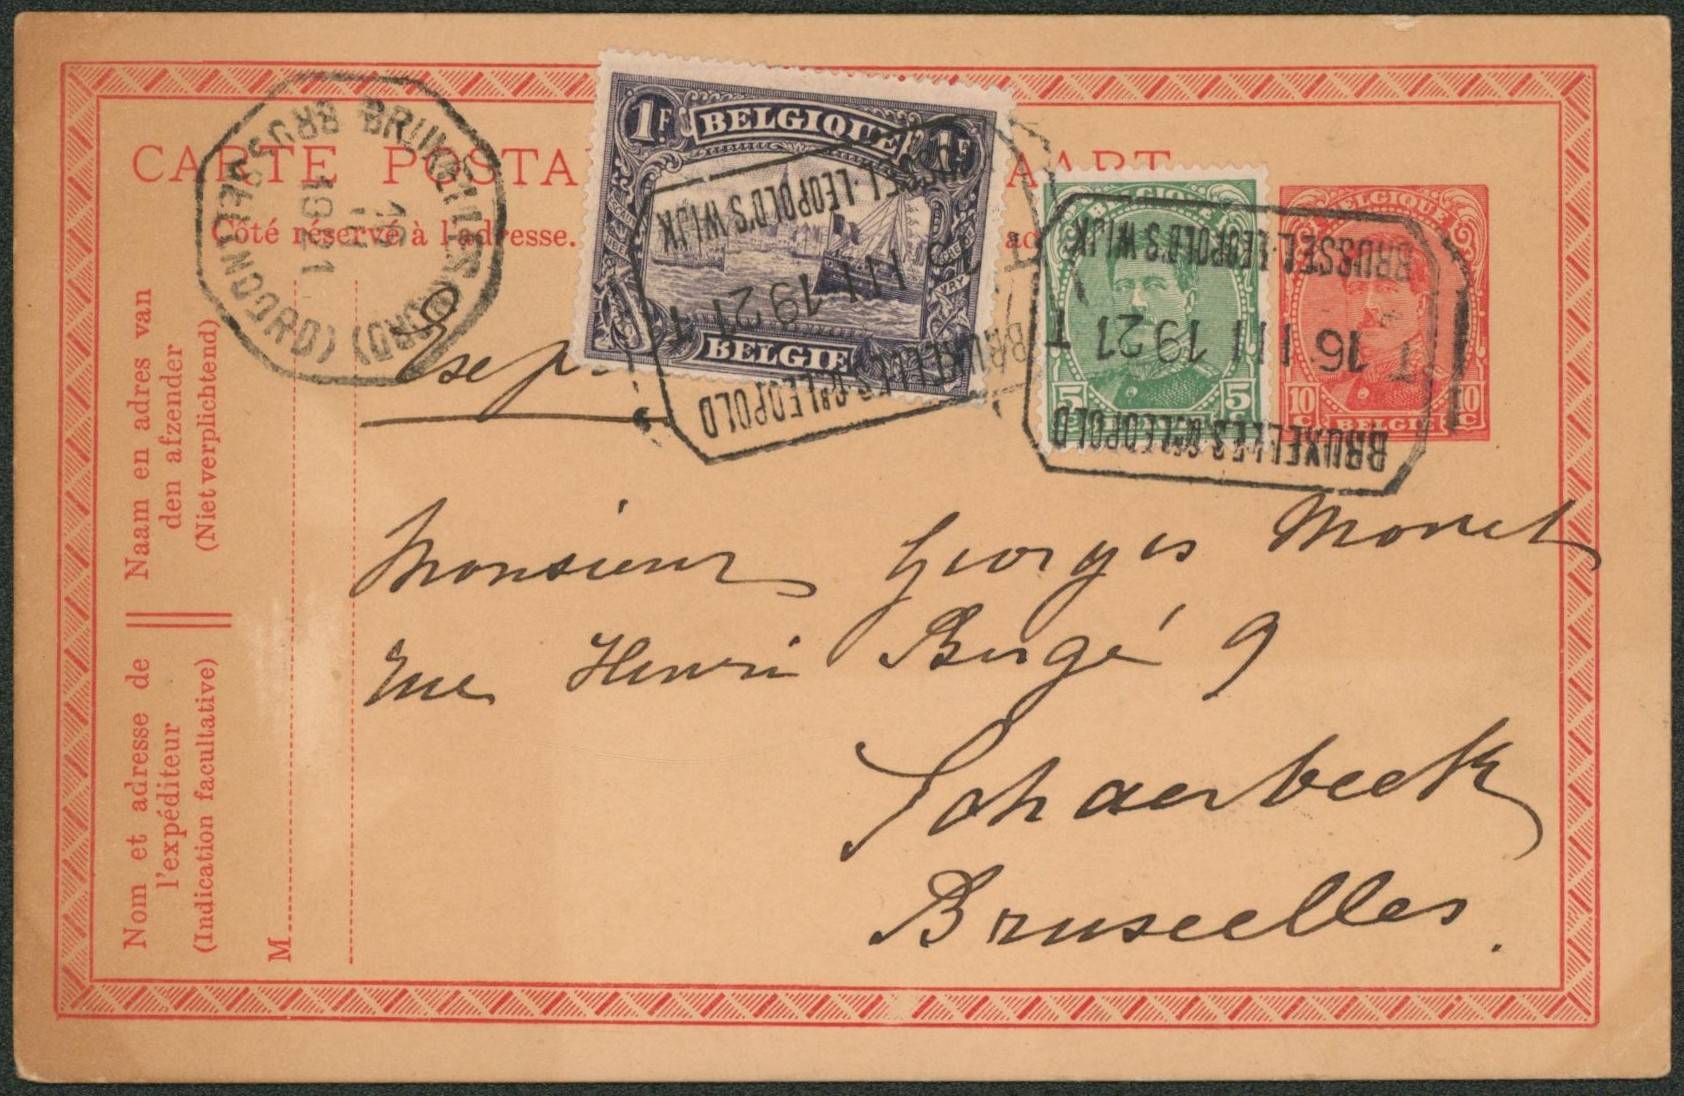 CARTE POSTA AART
Côté réservé à l'adresse.
1F BELGIQUE 1F
BELGIE
BELGIQUE
5C 5C
BELGIQUE
10C BELGIE 10C
BRUXELLES (NORD) (NOORD) BRUSSEL
16
III
1921
BRUSSEL-LEOPOLD'S WIJK
III 1921 T
BRUXELLES-QR LEOPOLD
BRUSSEL-LEOPOLD'S WIJK
T 16 III 1921 T
BRUXELLES-QR LEOPOLD
Monsieur Georges Monet
rue Henri Bergé 9
Schaerbeek
Bruxelles.
Naam en adres van
den afzender
(Niet verplichtend)
Nom et adresse de
l'expéditeur
(Indication facultative)
M